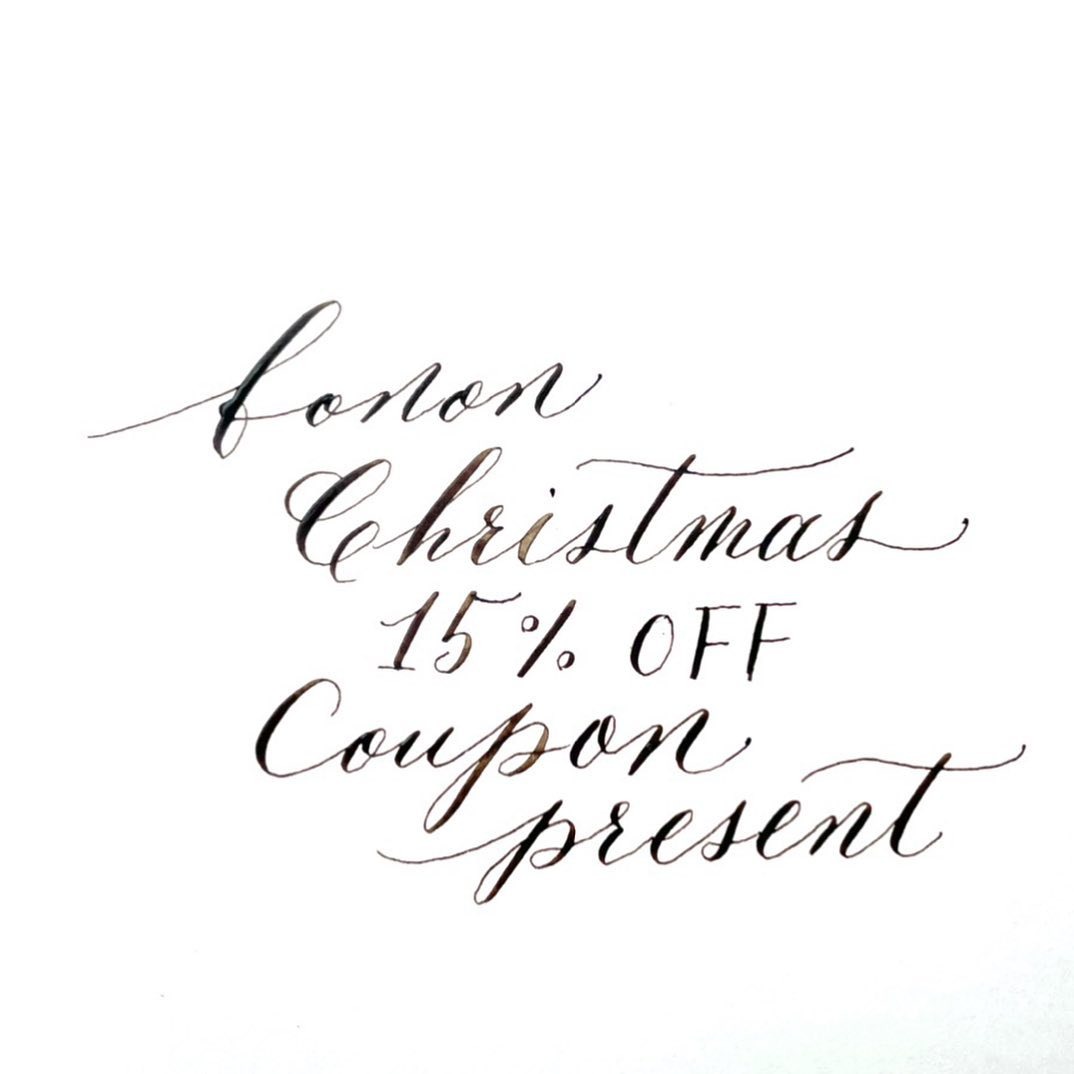 bonon
Christmas
15% OFF
Coupon
present